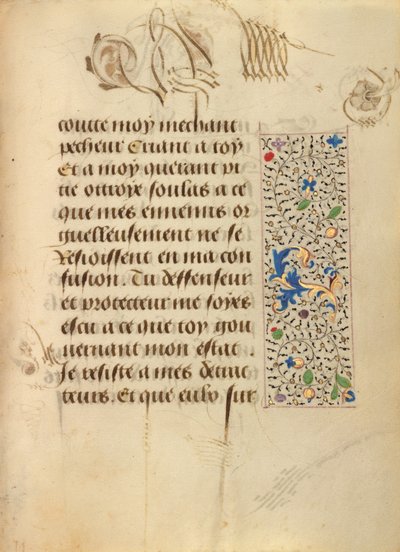 coutte moy mechant
pecheur Criant a toy
Et a moy querant pi
tie ottroye soulas a ce
que mes ennemis or
guelleusement ne se
Resioissent en ma con
fusion. Tu deffenseur
et protecteur me soyes
escu a ce que toy gou
uernant mon estat.
Je resiste a mes detrac
teurs. Et que